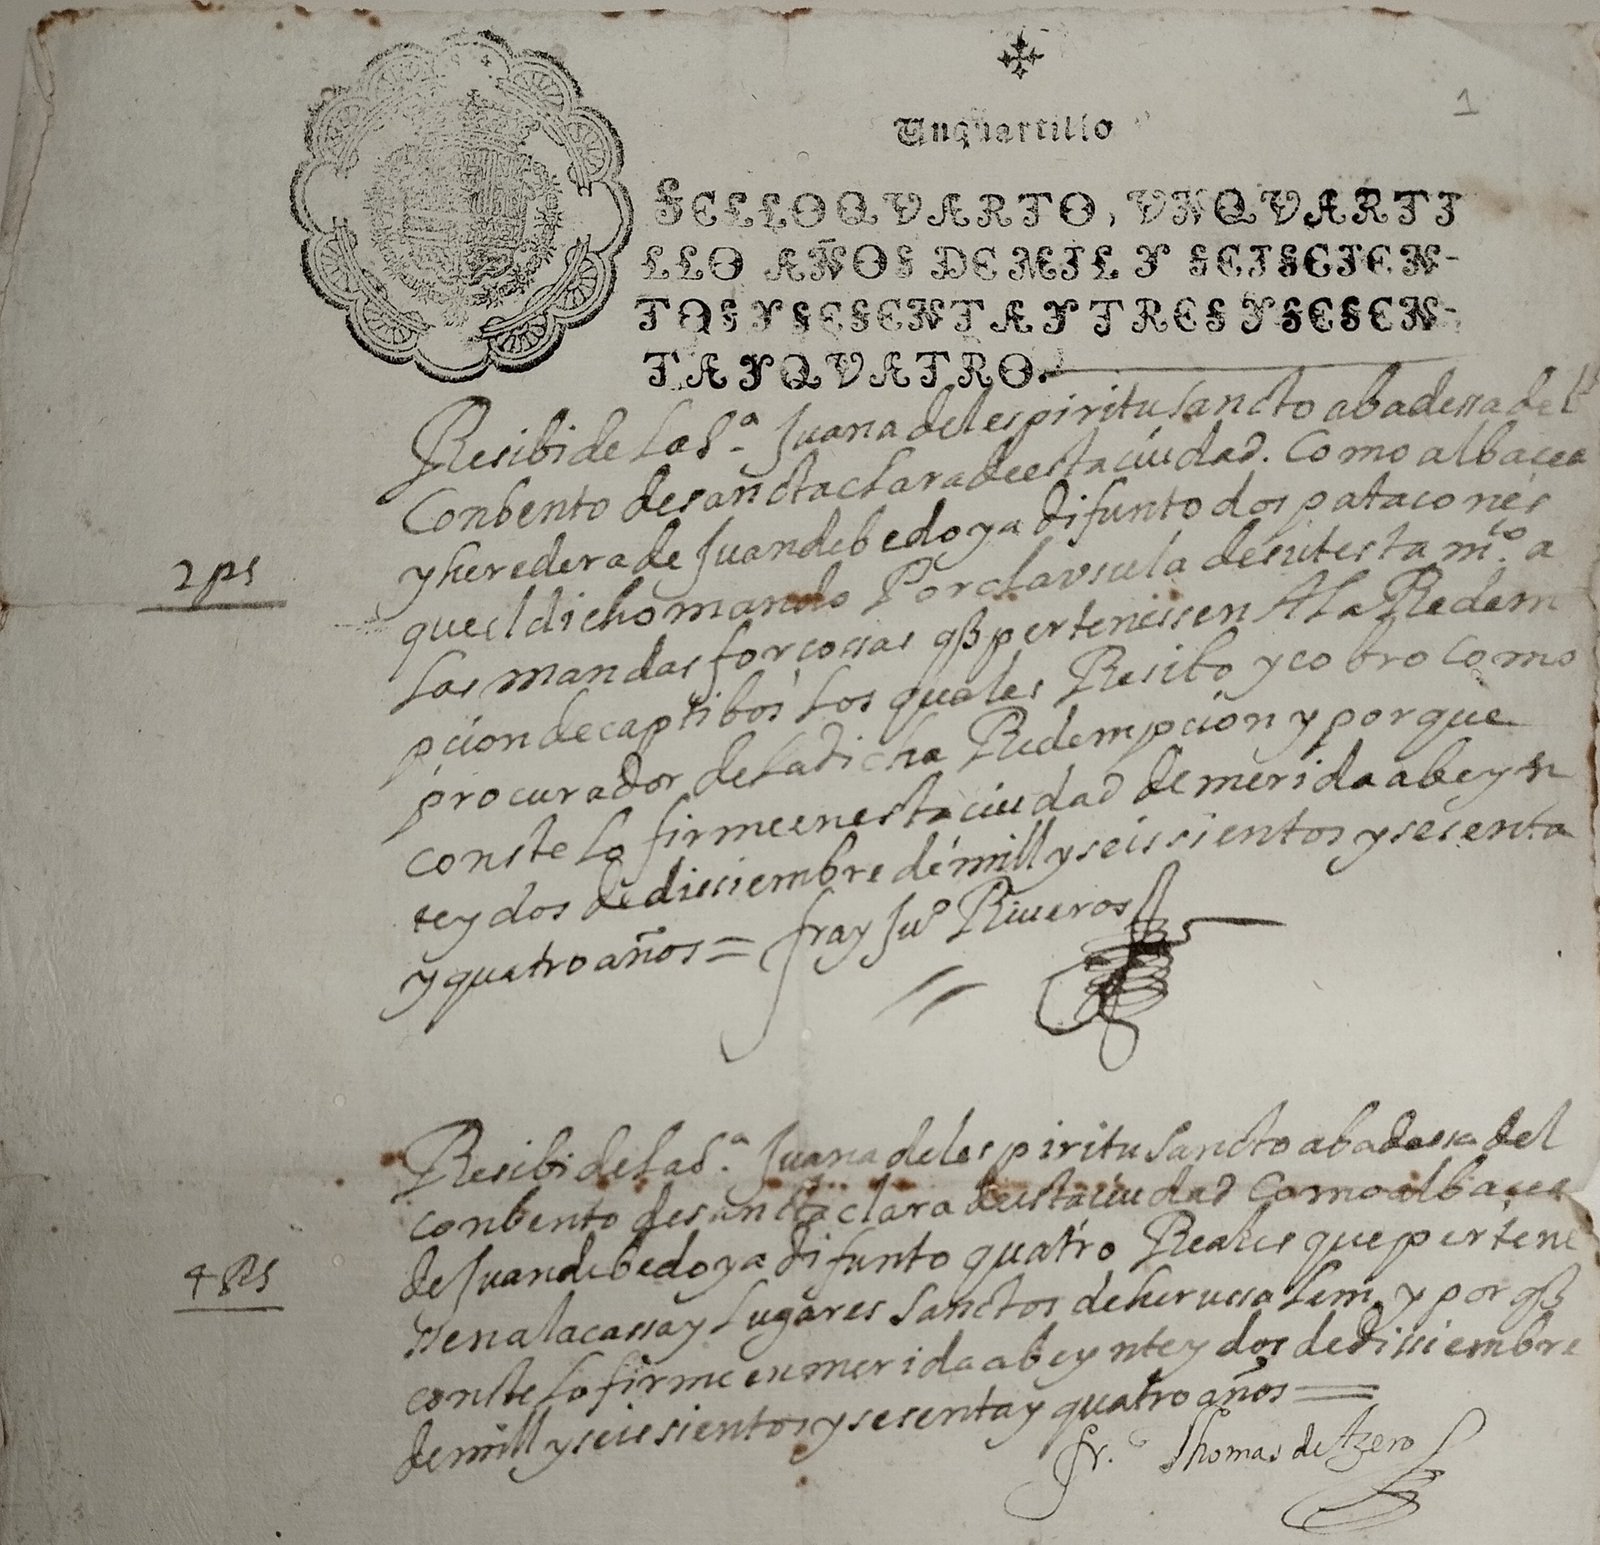 1
Unquartillo
SELLOQVARTO, VNQVARTI
LLO AÑOS DE MIL Y SEISCIEN-
TOS Y SESENTA Y TRES Y SESEN-
TA Y QVATRO.
Resibi de la S.ª Juana del espiritu sancto abadessa del
Conbento de sancta clara de esta ciudad. Como albacea
y heredera de Juan de bedoya difunto dos patacones
2 ps
que el dicho mando Por clausula de su testam.to a
las mandas forçossas q pertenessen A la Redem
pcion de captibos los quales Resibo y cobro como
procurador de la dicha Redempcion y porque
conste lo firme en esta ciudad de merida a beyn
te y dos de diciembre de mill y seissientos y sesenta
y quatro años = fray Ju.o Riueros
Resibi de la S.ª Juana del espiritu sancto abadessa del
conbento de sancta clara de esta ciudad como albacea
de Juan de bedoya difunto quatro Reales que pertene
4 Rs
ssen a la cassa y lugares sanctos de herussalem y por q
conste lo firme en merida a beynte y dos de dissiembre
de mill y seissientos y sesenta y quatro años =
fr. Thomas de Azero